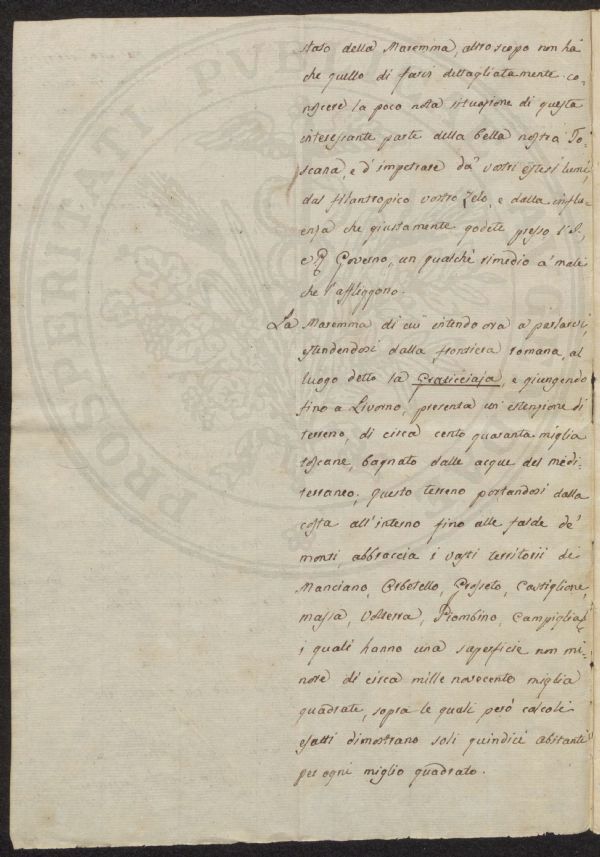 stato della Maremma, altro scopo non hà
che quello di farvi dettagliatamente co-
noscere la poco nota situazione di questa
interessante parte della bella nostra To-
scana, e d'impetrare dà vostri estesi lumi,
dal filantropico vostro Zelo, e dalla influ-
enza che giustamente godete presso l'I.
e R. Governo, un qualche rimedio a' mali
che l'affliggono.
La Maremma di cui intendo ora a parlarvi,
estendendosi dalla frontiera romana, al
luogo detto la Graticciaja, e giungendo
fino a Livorno, presenta un' estenzione di
terreno, di circa cento quaranta miglia
toscane, bagnato dalle acque del medi-
terraneo; questo terreno portandosi dalla
costa all'interno fino alle falde de'
monti, abbraccia i vasti territorii di
Manciano, Orbetello, Grosseto, Castiglione,
Massa, Volterra, Piombino, Campiglia,
i quali hanno una superficie non mi-
nore di circa mille novecento miglia
quadrate, sopra le quali però calcoli
esatti dimostrano soli quindici abitanti
per ogni miglio quadrato.
PROSPERITATI PVBLICAE